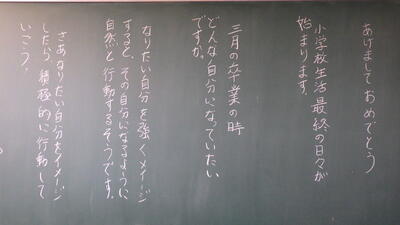 あけましておめでとう
小学校生活最終の日々が
始まります。
三月の卒業の時
どんな自分になっていたい
ですか。
なりたい自分を強くイメージ
すると、その自分になるように
自然と行動するそうです。
さあなりたい自分をイメージ
したら、積極的に行動して
いこう。